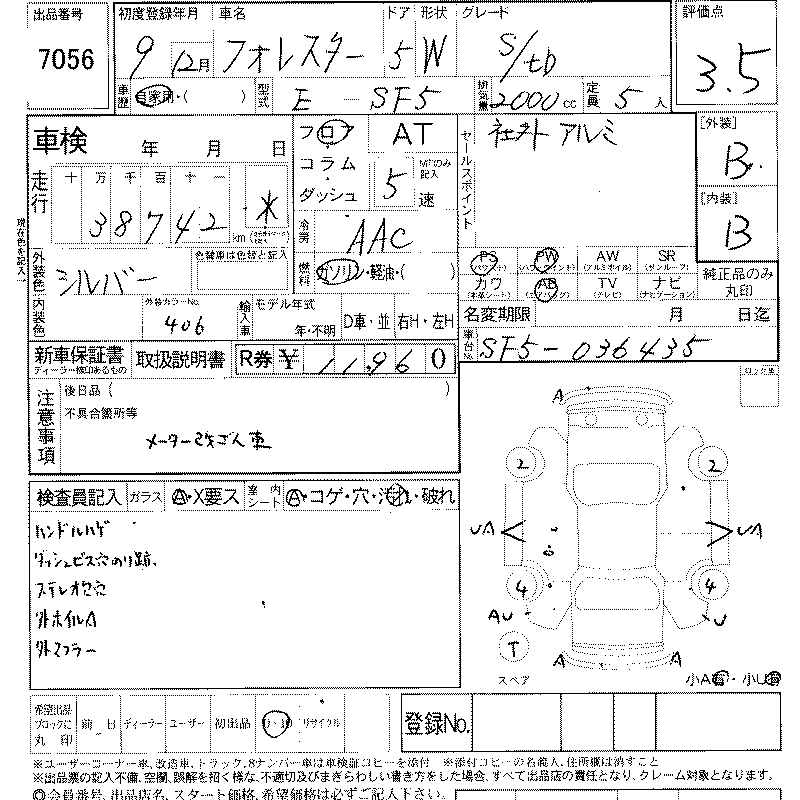 出品番号 初度登録年月 車名 ドア 形状 グレード 評価点
7056 9 12月 フォレスター 5 W S/tb 3.5
車歴 自家用・( ) 型式 E-SF5 排気量 2000cc 定員 5人
車検 年 月 日
フロア AT
コラム
ダッシュ 5速 MTのみ記入
セールスポイント 社外アルミ
[外装] B
[内装] B
走行 十 万 千 百 十 一
38742 km *
冷房 AAC
燃料 ガソリン・軽油・( )
現在色を記入
外装色 シルバー 色替車は色替と記入
内装色 外装カラーNo. 406
輸入車 モデル年式 年・不明 D車・並 右H・左H
PS (パワステ) PW (パワーウィンド) AW (アルミホイル) SR (サンルーフ)
カワ (本革シート) AB (エアバッグ) TV (テレビ) ナビ (ナビゲーション)
純正品のみ丸印
名変期限 月 日迄
車台No. SF5-036435
新車保証書 ディーラー捺印あるもの 取扱説明書 R券 ¥ 11,960
注意事項
後日品 ( )
不具合箇所等
メーター改ざん車
検査員記入 ガラス A・X要ス 室内シート A・コゲ・穴・汚れ・破れ
ハンドルハゲ
ダッシュビス穴のり跡、
ステレオ穴
外ホイルA
外マフラー
A
2 2
UA UA
4 4
AU U
T
スペア
A A
小A・小U
希望出品ブロックに丸印 前日 ディーラー ユーザー 初出品 リサイクル
登録No.
※ユーザーコーナー車、改造車、トラック、8ナンバー車は車検証コピーを添付 ※添付コピーの名義人、住所欄は消すこと
※出品票の記入不備、空欄、誤解を招く様な、不適切及びまぎらわしい書き方をした場合、すべて出品店の責任となり、クレーム対象となります。
◎会員番号、出品店名、スタート価格、希望価格は必ずご記入下さい。